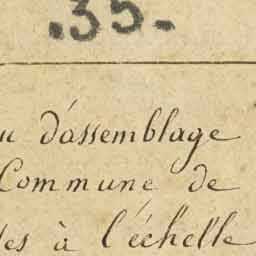 .35.
u d'assemblage
Commune de
les à l'échelle